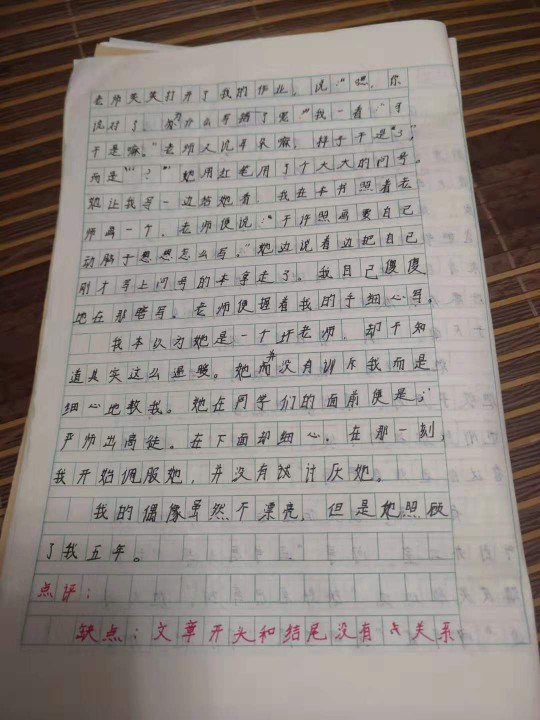 老师笑笑打开了我的作业，说："嗯，你
说对了，为什么写错了呢"我一看："不
不是嘛。"老师又说
而是"？"她用红笔用了个大大的问号。
她让我写一边给她看，我在本书照着老
师画一个，老师便说："不许照画要自己
动脑子想想怎么写。"她边说着边把自己
刚才写上问号的本拿走了。我自己傻傻
地在那瞎写，老师便握着我的手细心写。
我本以为她是一个坏老师，却不知
道其实这么温暖。她并没有训斥我而是
细心地教我。她在同学们的面前便是：
严师出高徒。在下面却细心，在那一刻，
我开始佩服她，并没有讨厌她。
我的偶像虽然不漂亮，但是她照顾
了我五年。
点评：
缺点：文章开头和结尾没有点关系